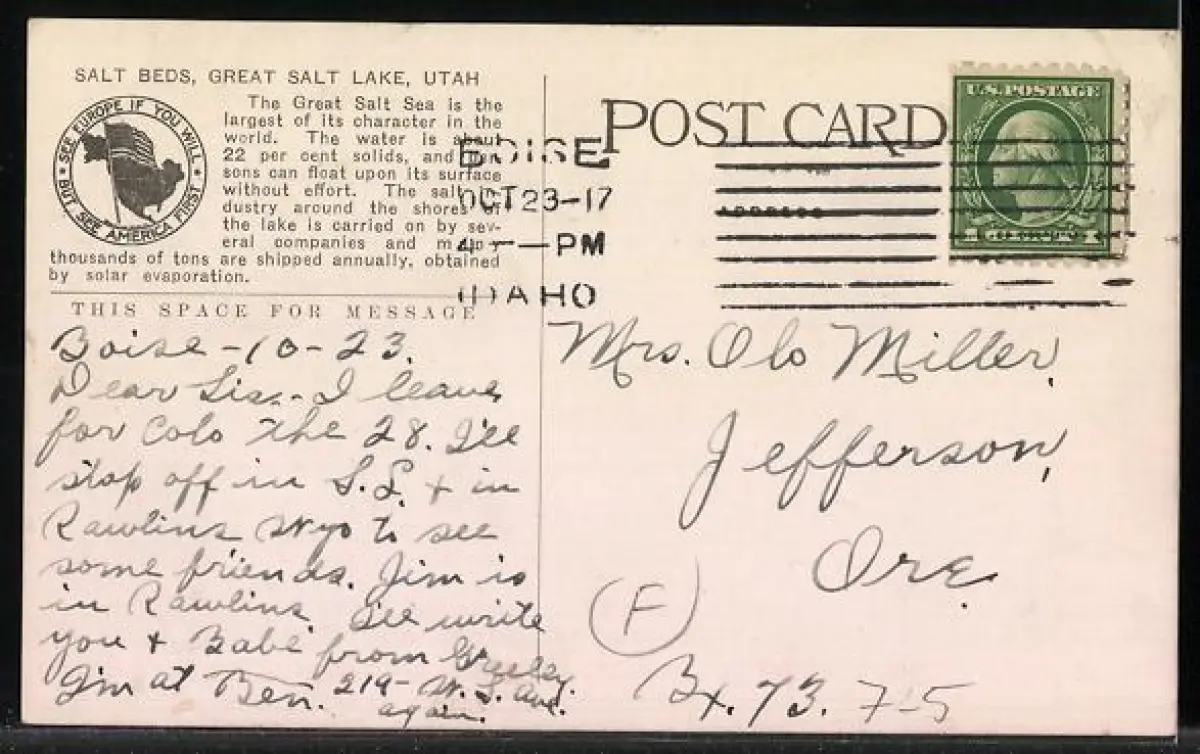 SALT BEDS, GREAT SALT LAKE, UTAH
SEE EUROPE IF YOU WILL
BUT SEE AMERICA FIRST
The Great Salt Sea is the
largest of its character in the
world. The water is about
22 per cent solids, and per-
sons can float upon its surface
without effort. The salt in-
dustry around the shores of
the lake is carried on by sev-
eral companies and many
thousands of tons are shipped annually, obtained
by solar evaporation.
THIS SPACE FOR MESSAGE
Boise - 10 - 23.
Dear Sis. - I leave
for Colo the 28. I'll
stop off in S.L. + in
Rawlins Wyo to see
some friends. Jim is
in Rawlins. I'll write
you + Babe from Greeley.
I'm at Ben. 219 - W. S. Ave.
again.
POST CARD
BOISE
OCT 23-17
4 - PM
IDAHO
ADDRESS
U.S. POSTAGE
1 CENTS 1
Mrs. Olo Miller,
Jefferson,
Ore.
F
Bx. 73. 7-5